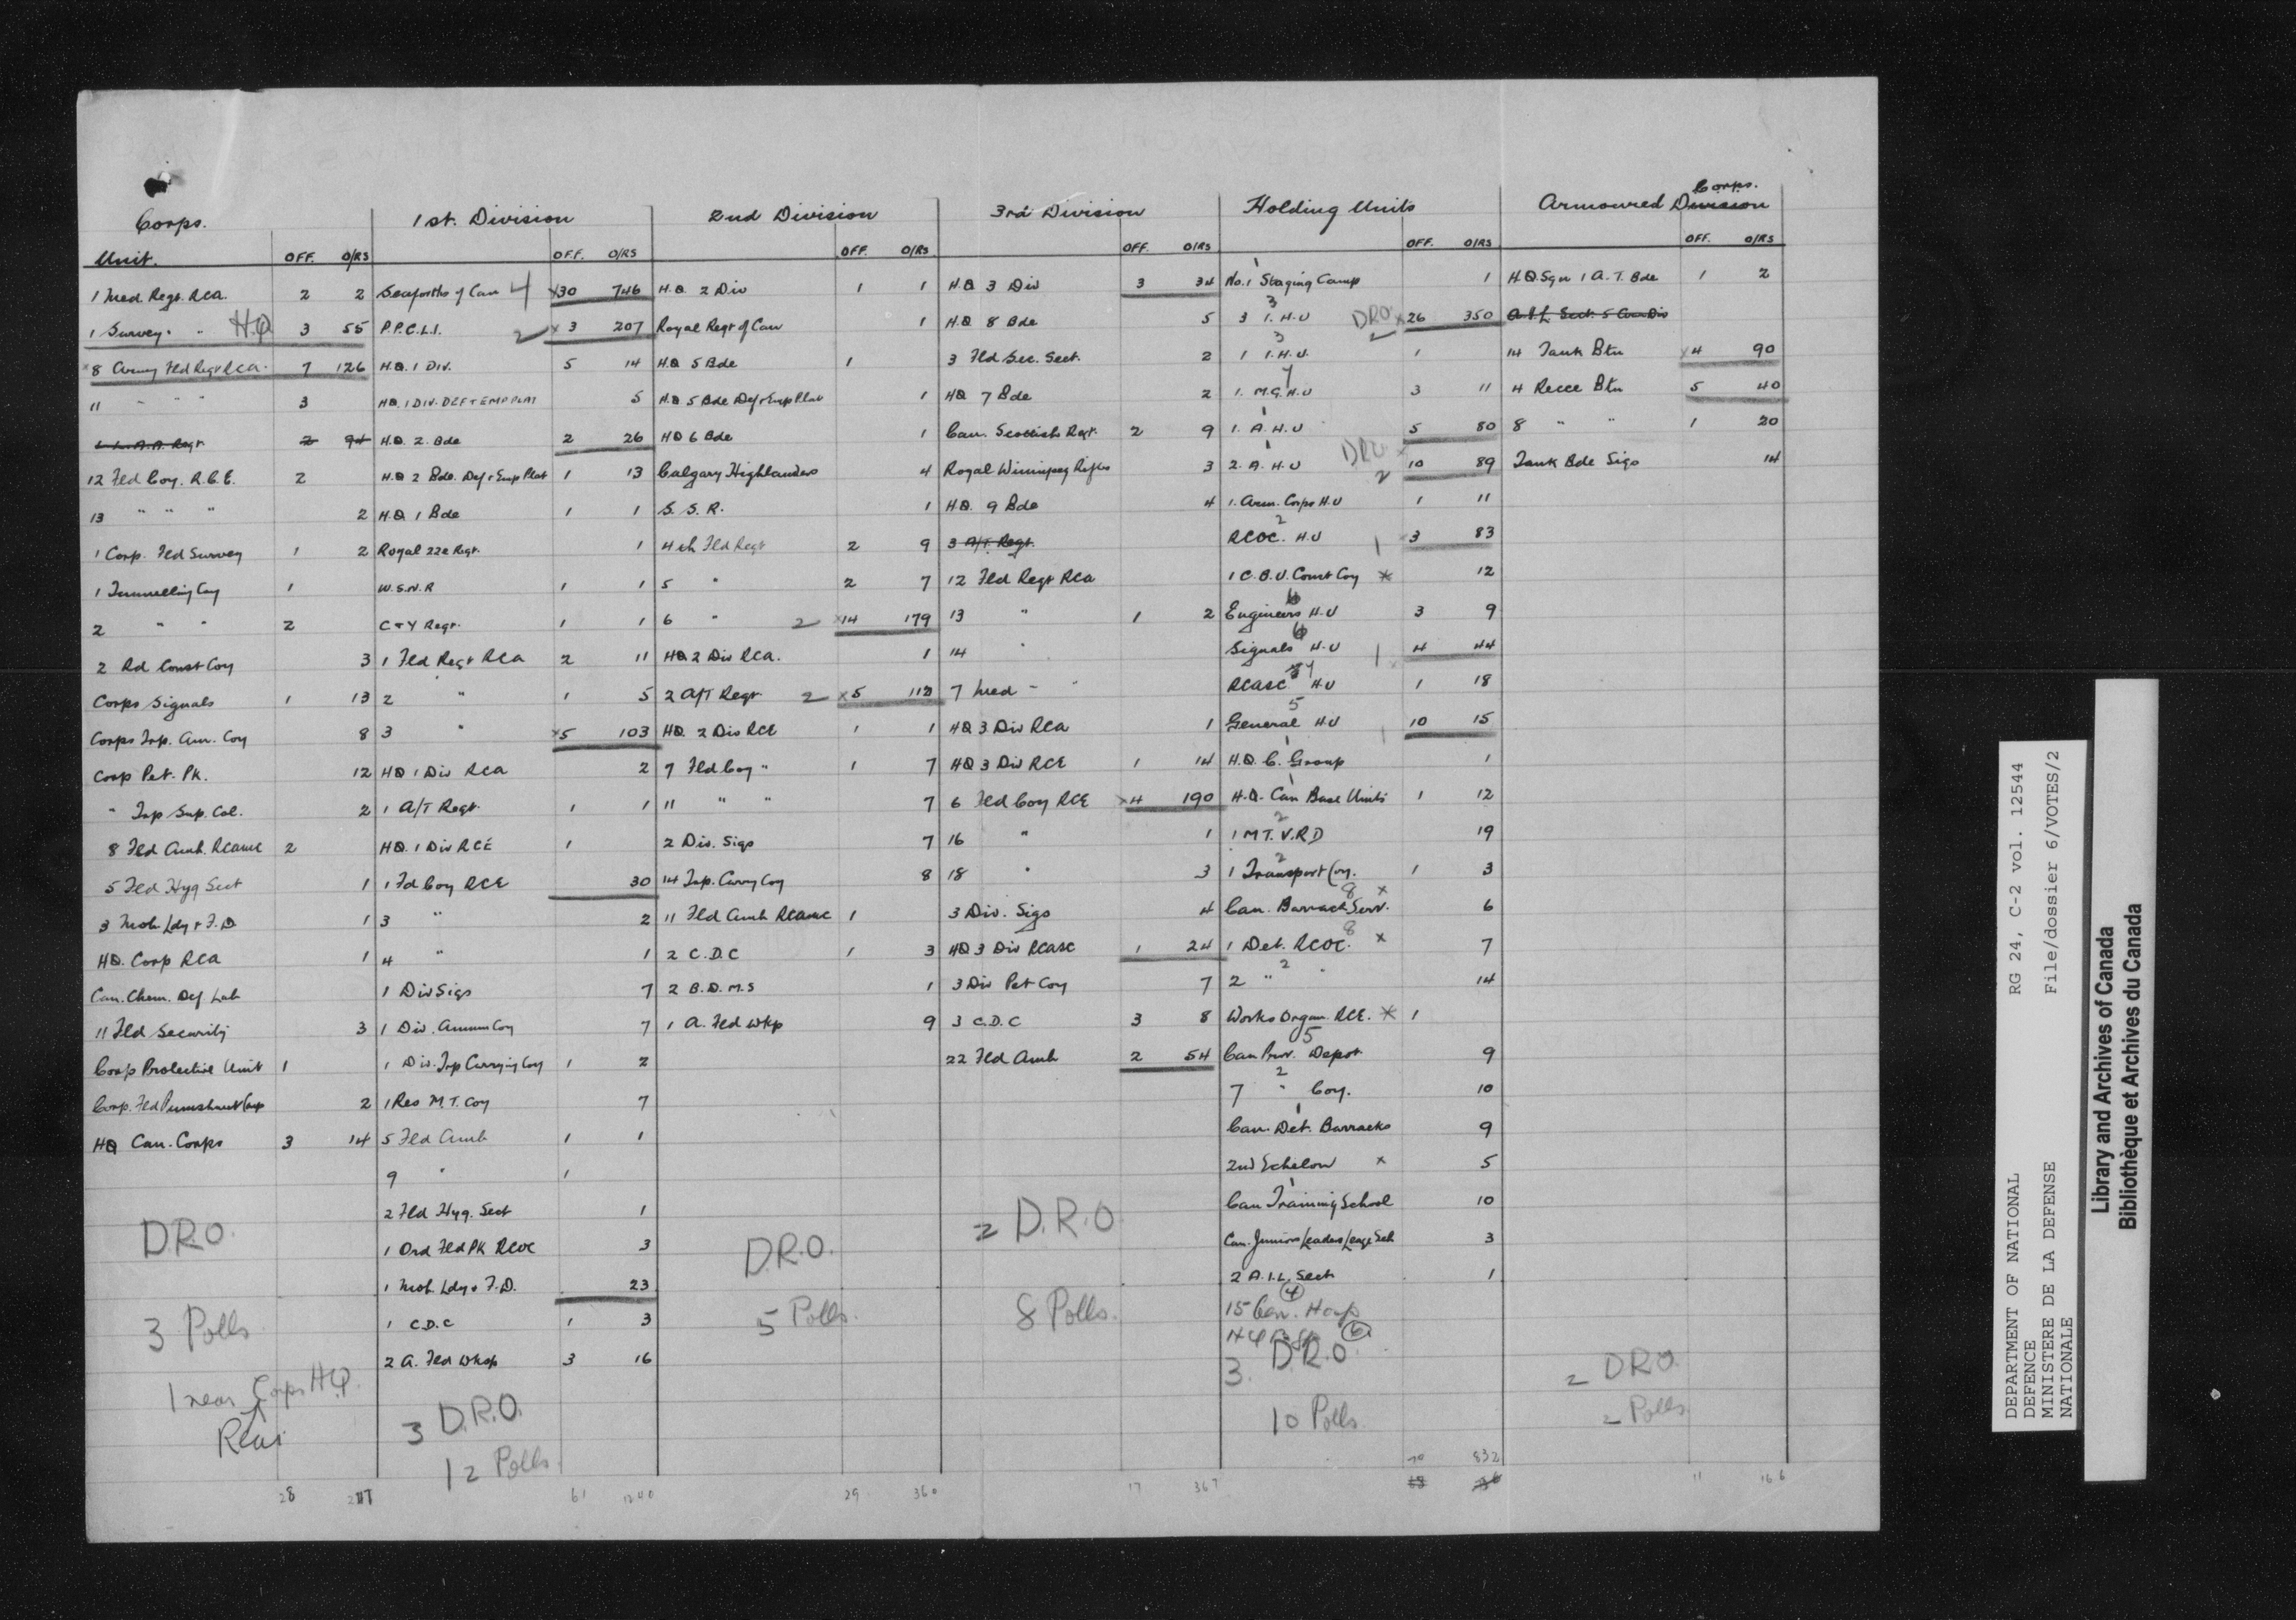 Corps.
Unit. OFF. O/RS
1 Med Regt. RCA. 2 2
1 Survey " " HQ 3 55
*8 Army Fld Regt RCA. 7 126
11 " " " 3
L.A.A. Regt. 2 94
12 Fld Coy. R.C.E. 2
13 " " " 2
1 Corp. Fld Survey 1 2
1 Tunnelling Coy 1
2 " " 2
2 Rd Const Coy 3
Corps Signals 1 13
Corps Trp. Am. Coy 8
Corp Pet. Pk. 12
" Trp Sup. Col. 2
8 Fld Amb. RCAMC 2
5 Fld Hyg Sect 1
3 Mob. Ldy + F.D. 1
HQ. Corp RCA 1
Can. Chem. Def. Lab
11 Fld Security 3
Corp Protective Unit 1
Corp. Fld Punishment Camp 2
HQ Can. Corps 3 14
D.R.O.
3 Polls
1 near Corps HQ.
Rear
28 217
1st. Division
OFF. O/RS
Seaforths of Can 4 x30 746
P.P.C.L.I. 2 x 3 207
H.Q. 1 Div. 5 14
HQ. 1 DIV. DEF + EMP PLAT 5
H.Q. 2. Bde 2 26
H.Q 2 Bde. Def + Emp Plat 1 13
H.Q 1 Bde 1 1
Royal 22e Regt. 1
W.S.N.R 1 1
C + Y Regt. 1 1
1 Fld Regt RCA 2 11
2 " 1 5
3 " x5 103
HQ 1 Div RCA 2
1 A/T Regt. 1 1
HQ. 1 Div RCE 1
1 Fd Coy RCE 30
3 " 2
4 " 1
1 Div Sigs 7
1 Div. Ammn Coy 7
1 Div. Trp Carrying Coy 1 2
1 Res M.T. Coy 7
5 Fld Amb 1 1
9 " 1
2 Fld Hyg. Sect 1
1 Ord Fld PK RCOC 3
1 Mob. Ldy + F.D. 23
1 C.D.C 1 3
2 A. Fld Wksp 3 16
3 D.R.O.
12 Polls
61 1240
2nd Division
OFF. O/RS
H.Q. 2 Div 1 1
Royal Regt of Can 1
H.Q 5 Bde 1
H.Q 5 Bde Def + Emp Plat 1
HQ 6 Bde 1
Calgary Highlanders 4
S. S. R. 1
4th Fld Regt 2 9
5 " 2 7
6 " 2 x14 179
HQ 2 Div RCA. 1
2 A/T Regt. 2 x5 112
HQ. 2 Div RCE 1 1
7 Fld Coy " 1 7
11 " " 7
2 Div. Sigs 7
14 Trp. Carry Coy 8
11 Fld Amb RCAMC 1
2 C.D.C 1 3
2 B.D.M.S 1
1 A. Fld Wkp 9
D.R.O.
5 Polls.
29 360
3rd Division
OFF. O/RS
H.Q 3 Div 3 34
H.Q 8 Bde 5
3 Fld Sec. Sect. 2
HQ 7 Bde 2
Can. Scottish Regt. 2 9
Royal Winnipeg Rifles 3
HQ. 9 Bde 4
3 A/T. Regt.
12 Fld Regt RCA
13 " 1 2
14 "
7 Med " "
HQ 3 Div RCA 1
HQ 3 Div RCE 1 14
6 Fld Coy RCE x4 190
16 " 1
18 " 3
3 Div. Sigs 4
HQ 3 Div RCASC 1 24
3 Div Pet Coy 7
3 C.D.C 3 8
22 Fld Amb 2 54
2 D.R.O.
8 Polls.
17 367
Holding Units
OFF. O/RS
1
No. 1 Staging Camp 1
3
3 I.H.U DRO 2 x26 350
3
1 I.H.U. 1
7
1. M.G.H.U 3 11
1
1. A.H.U 5 80
1
2. A.H.U DRO x 2 10 89
1. Arm. Corps H.U 1 11
2
RCOC. H.U 1 3 83
1 C.B.U. Const Coy * 12
6
Engineers H.U 3 9
6
Signals H.U 1 4 44
7
RCASC H.U 1 18
5
General H.U 10 15
1
H.Q. C. Group 1
1
H.Q. Can Base Units 1 12
2
1 M.T.V.R.D 19
2
1 Transport Coy. 1 3
8 x
Can. Barrack Serv. 6
8
1 Det. RCOC. x 7
2
2 " " 14
Works Organ. RCE. * 1
5
Can Prov. Depot 9
2
7 " Coy. 10
1
Can. Det. Barracks 9
2nd Echelon x 5
1
Can Training School 10
Can. Junior Leaders 3
2 A.I.L. Sect 1
4
15 Can. Hosp
6
3. D.R.O.
10 Polls.
70 832
Corps.
Armoured Division
OFF. O/RS
H.Q. Sqn 1 A.T. Bde 1 2
14 Tank Btn x4 90
4 Recce Btn 5 40
8 " " 1 20
Tank Bde Sigs 14
2 DRO.
2 Polls
11 166
DEPARTMENT OF NATIONAL DEFENCE
MINISTERE DE LA DEFENSE NATIONALE
RG 24, C-2 vol. 12544
File/dossier 6/VOTES/2
Library and Archives of Canada
Bibliothèque et Archives du Canada